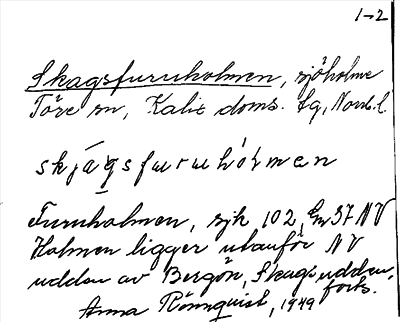 1-2
Skagsfuruholmen, sjöholme
Töre sn, Kalix doms. lg, Norrb. l.
skjagsfuruhólmen
Furuholmen, sjk 102, Em 37 NV
Holmen ligger utanför NV
udden av Bergön, Skagsudden,
forts.
Anna Rönnquist, 1949